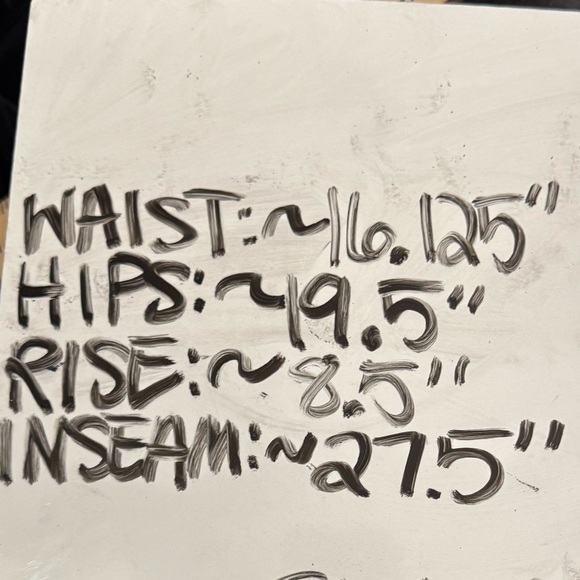 WAIST: ~16.125"
HIPS: ~19.5"
RISE: ~8.5"
INSEAM: ~27.5"